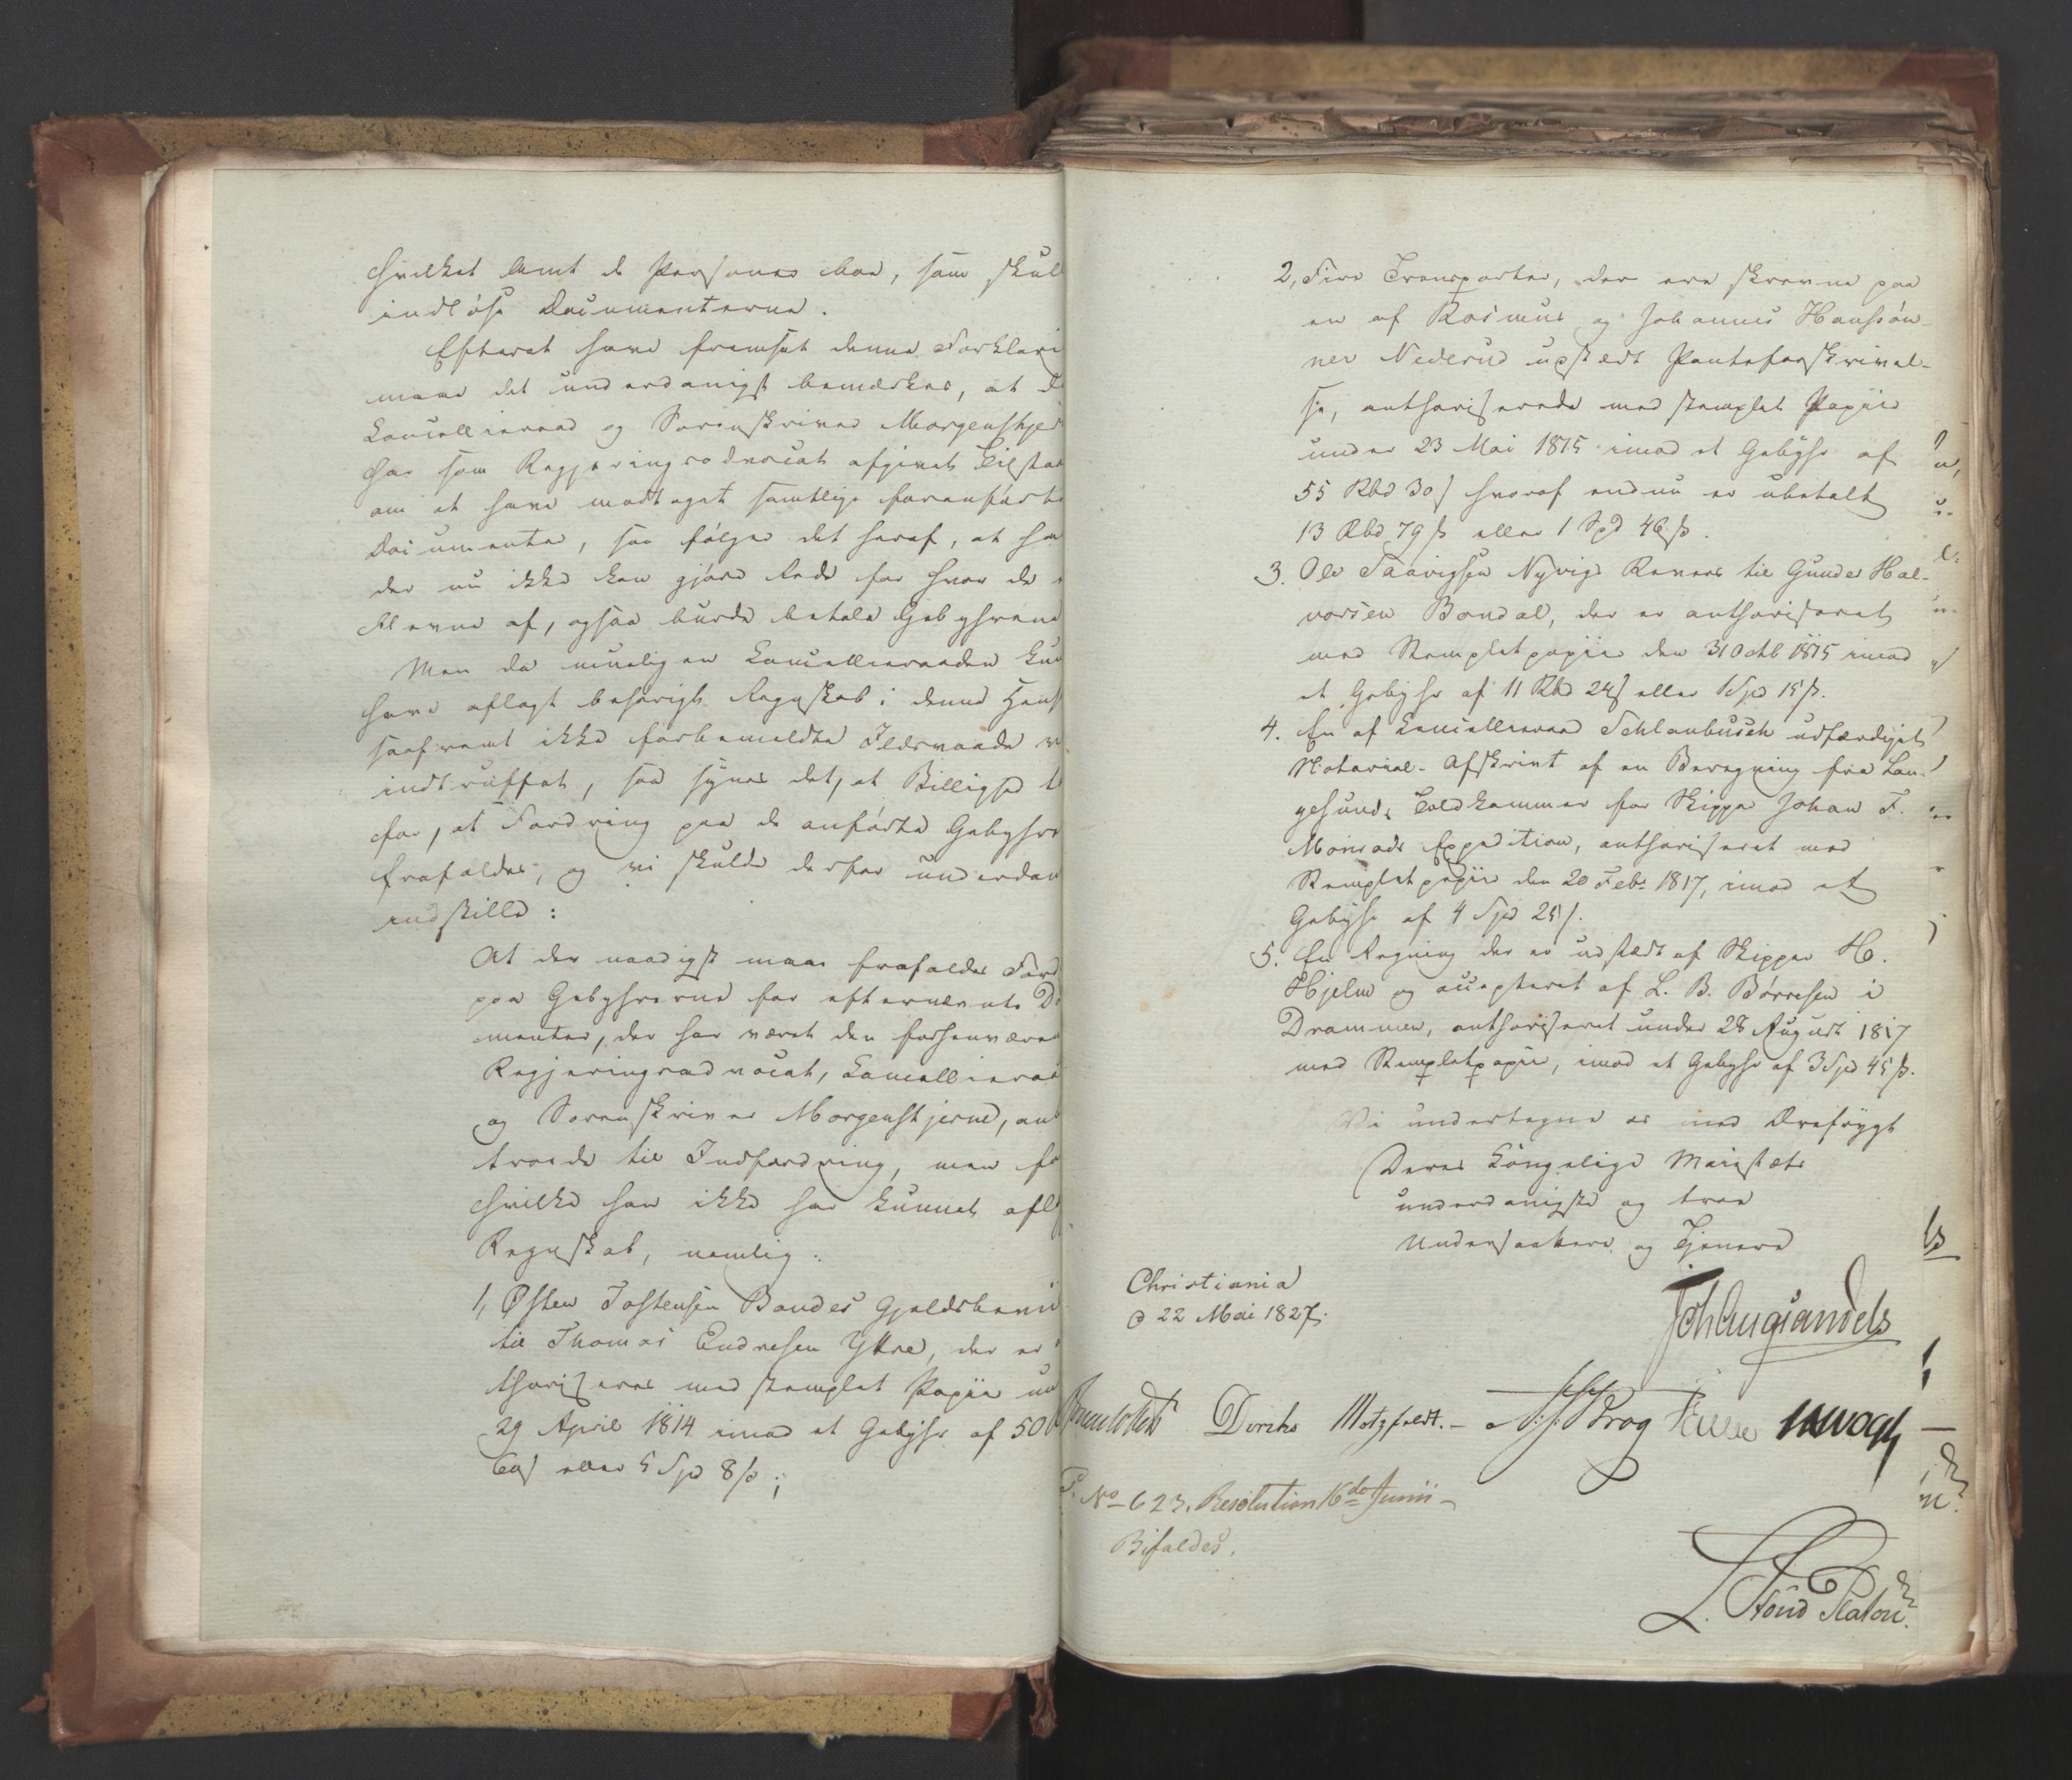 hvilket Amt de Personer boe, som skul
indløse Documenterne.
Efterat have fremsat denne Forklari
maae det underdanigst bemærkes, at d
Cancellieraad og Sorenskriver Morgenstjer
har som Regjeringsadvocat afgivet Tilstaa
om at have modtaget samtlige foranførte
Documenter, saa følger det heraf, at ha
der nu ikke kan gjøre Rede for hvor de
blevne af, ogsaa burde betale Gebyhrene
Men da rimeligen Cancellieraaden kun
have aflagt behørigt Regnskab i denne Hens
saafremt ikke forbemeldte Ildsvaade v
indtruffet, saa synes det, at Billighed t
for, at Fordring paa de anførte Gebyhre
frafaldes, og vi skulde derfor underdan
indstille:
At der naadigst maae frafaldes Ford
paa Gebyhrerne for efternævnte Do
menter, der har været den forhenværen
Regjeringsadvocat, Cancellieraa
og Sorenskriver Morgenstjerne, an
troede til Indfordring, men fo
hvilke han ikke har kunnet afl
Regnskab, nemlig:
1, Østen Jostensen Bondes Gjeldsbevii
til Thomas Endresen Yttre, der er
thoriseret med stemplet Papiir un
29 April 1814 imod et Gebyhr af 50
eller 5 Spd 8 ß;
2, Fire Transporter, der ere skrevne paa
en af Rasmus og Johannes Hanssøn-
ner Nederud udstedt Panteforskrivel-
se, authoriserede med stemplet Papiir
under 23 Mai 1815 imod et Gebyhr af
55 Rbd 30 ß hvoraf endnu er ubetalt
13 Rbd 79 ß eller 1 Spd 46 ß.
3. Ole Taarigsen Nyvigs Revers til Gunder Hal-
vorsen Bondal, der er authoriseret
med Stempletpapiir den 31 Octb 1815 imod
et Gebyhr af 11 Rbd 24 ß eller 1 Spd 15 ß.
4. En af Cancellieraad Schlanbusch udfærdiget
Notarial-Afskrivt af en Beregning fra Lan-
gesunds Toldkammer for Skipper Johan F.
Monrads Expedition, authoriseret med
Stempletpapiir den 20 Febr 1817, imod et
Gebyhr af 4 Spd 25 ß.
5. En Regning der er udstædt af Skipper H.
Hjelm og accepteret af L. B. Børresen i
Drammen, authoriseret under 28 August 1817
med Stempletpapiir, imod et Gebyhr af 3 Spd 45 ß.
Vi undertegne os med Ærefrygt
Deres Kongelige Majestæts
underdanigste og troe
Undersaatter og Tjenere
Christiania
d 22 Mai 1827.
Joh Aug Sandels
Diriks Motzfeldt. Krog
P. No 623. Resolution 16de Junii
Bifaldes.